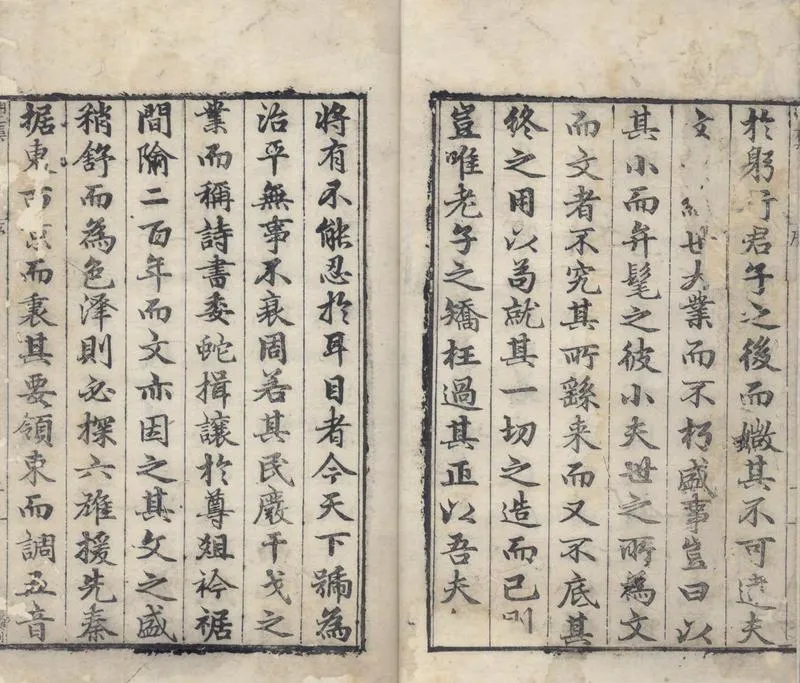 於躬行君子之後而媺其不可逮夫
文世大業而不朽盛事豈曰以
其小而弁髦之彼小夫世之所爲文
而文者不究其所繇来而又不底其
終之用以苟就其一切之造而已
豈唯老子之矯枉過其正以吾夫
將有不能忍於耳目者今天下號為
治平無事不衰周若其民厭干戈之
業而稱詩書委蛇揖讓於尊俎衿裾
間隃二百年而文亦因之其文之盛
稍舒而為色澤則必探六雄援先秦
据東而裒其要領束而調五音